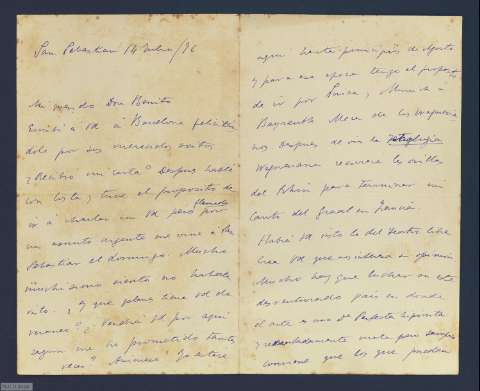 San Sebastian 14 Julio/96
Mi querido Don Benito
Escribí á Vd á Barcelona felicitán
dole por sus merecidos éxitos
¿Recibió mi carta? Despues hablé
con Costa y tuve el proposito de
ir á charlar con Vd pero por
un asunto urgente me vine á San
Sebastian el domingo. Muchí
muchisimo siento no haberle
visto. ¿y que planes tiene Vd de
verano? ¿Vendrá Vd por aquí
segun me ha prometido tantas
veces? Animese! Yo estaré
aqui hasta principios de Agosto
y para esa epoca tengo el proposito
de ir por Suiza y Munich á
Bayreuth Meca de los Wagneria
nos Despues de oir la
Wagneriana recorreré las orillas
del Rhin para terminar mi
en Francia
Habrá Vd visto lo del Teatro libre
Crea Vd que
Mucho hay que luchar en este
desventurado pais en donde
el arte es una Dª Perfecta hipocrita
y mala pero siempre
conviene que los que puedan